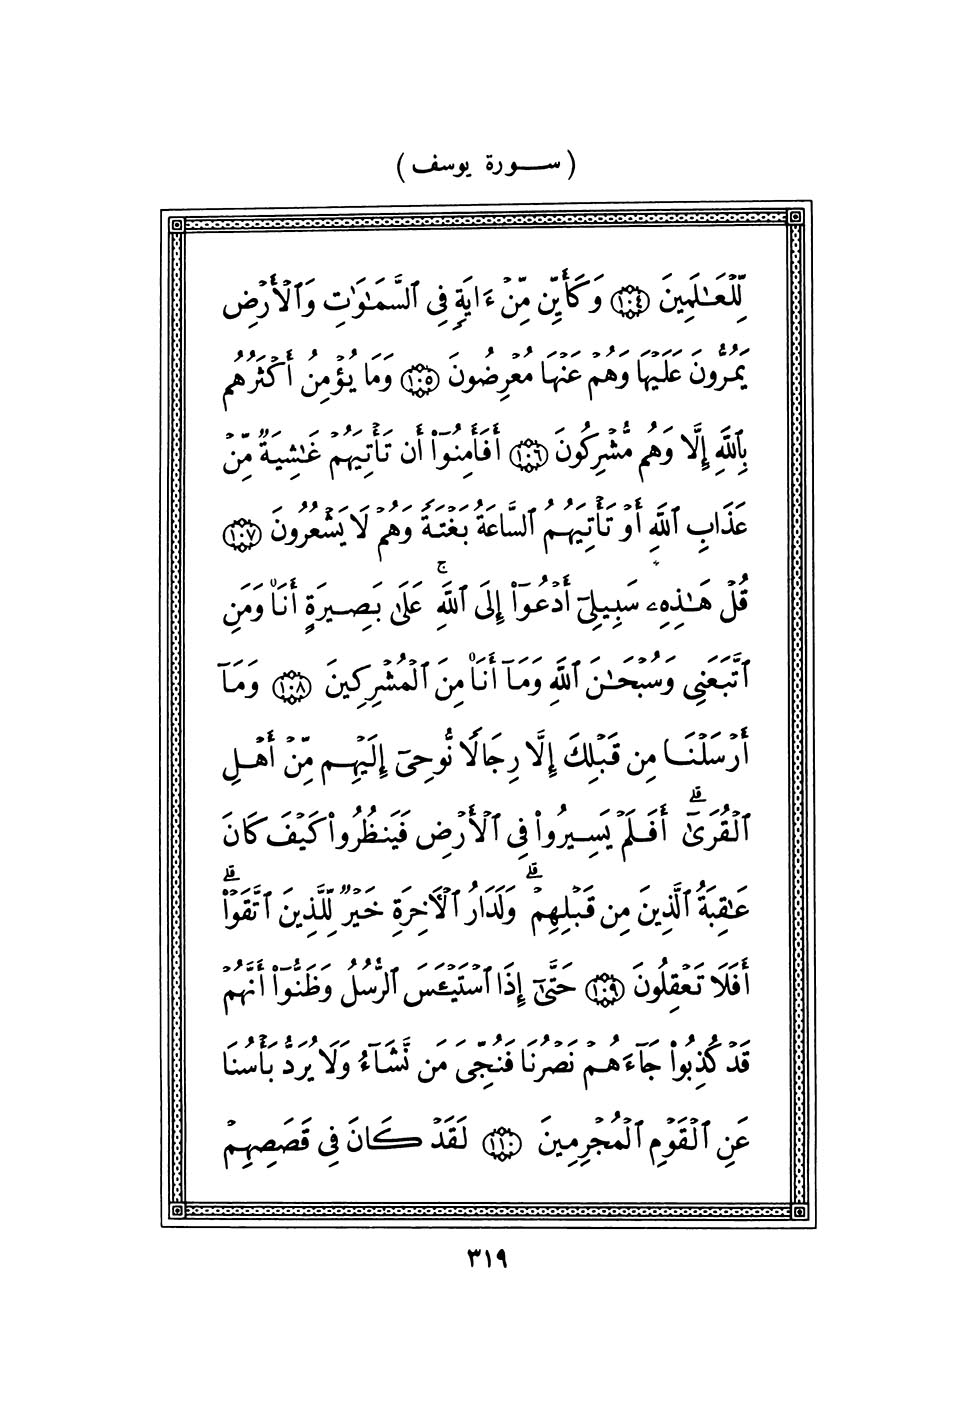 ( ســـورة يوسف )
لِّلْعَـٰلَمِينَ ١٠٤ وَكَأَيِّن مِّنْ ءَايَةٍ فِى ٱلسَّمَـٰوَٰتِ وَٱلْأَرْضِ
يَمُرُّونَ عَلَيْهَا وَهُمْ عَنْهَا مُعْرِضُونَ ١٠٥ وَمَا يُؤْمِنُ أَكْثَرُهُم
بِٱللَّهِ إِلَّا وَهُم مُّشْرِكُونَ ١٠٦ أَفَأَمِنُوٓا۟ أَن تَأْتِيَهُمْ غَـٰشِيَةٌ مِّنْ
عَذَابِ ٱللَّهِ أَوْ تَأْتِيَهُمُ ٱلسَّاعَةُ بَغْتَةً وَهُمْ لَا يَشْعُرُونَ ١٠٧
قُلْ هَـٰذِهِۦ سَبِيلِىٓ أَدْعُوٓا۟ إِلَى ٱللَّهِ ۚ عَلَىٰ بَصِيرَةٍ أَنَا۠ وَمَنِ
ٱتَّبَعَنِى وَسُبْحَـٰنَ ٱللَّهِ وَمَآ أَنَا۠ مِنَ ٱلْمُشْرِكِينَ ١٠٨ وَمَآ
أَرْسَلْنَا مِن قَبْلِكَ إِلَّا رِجَالًا نُّوحِىٓ إِلَيْهِم مِّنْ أَهْلِ
ٱلْقُرَىٰٓ ۗ أَفَلَمْ يَسِيرُوا۟ فِى ٱلْأَرْضِ فَيَنظُرُوا۟ كَيْفَ كَانَ
عَـٰقِبَةُ ٱلَّذِينَ مِن قَبْلِهِمْ ۗ وَلَدَارُ ٱلْـَٔاخِرَةِ خَيْرٌ لِّلَّذِينَ ٱتَّقَوْا۟ ۗ
أَفَلَا تَعْقِلُونَ ١٠٩ حَتَّىٰٓ إِذَا ٱسْتَيْـَٔسَ ٱلرُّسُلُ وَظَنُّوٓا۟ أَنَّهُمْ
قَدْ كُذِبُوا۟ جَآءَهُمْ نَصْرُنَا فَنُجِّىَ مَن نَّشَآءُ وَلَا يُرَدُّ بَأْسُنَا
عَنِ ٱلْقَوْمِ ٱلْمُجْرِمِينَ ١١٠ لَقَدْ كَانَ فِى قَصَصِهِمْ
٣١٩